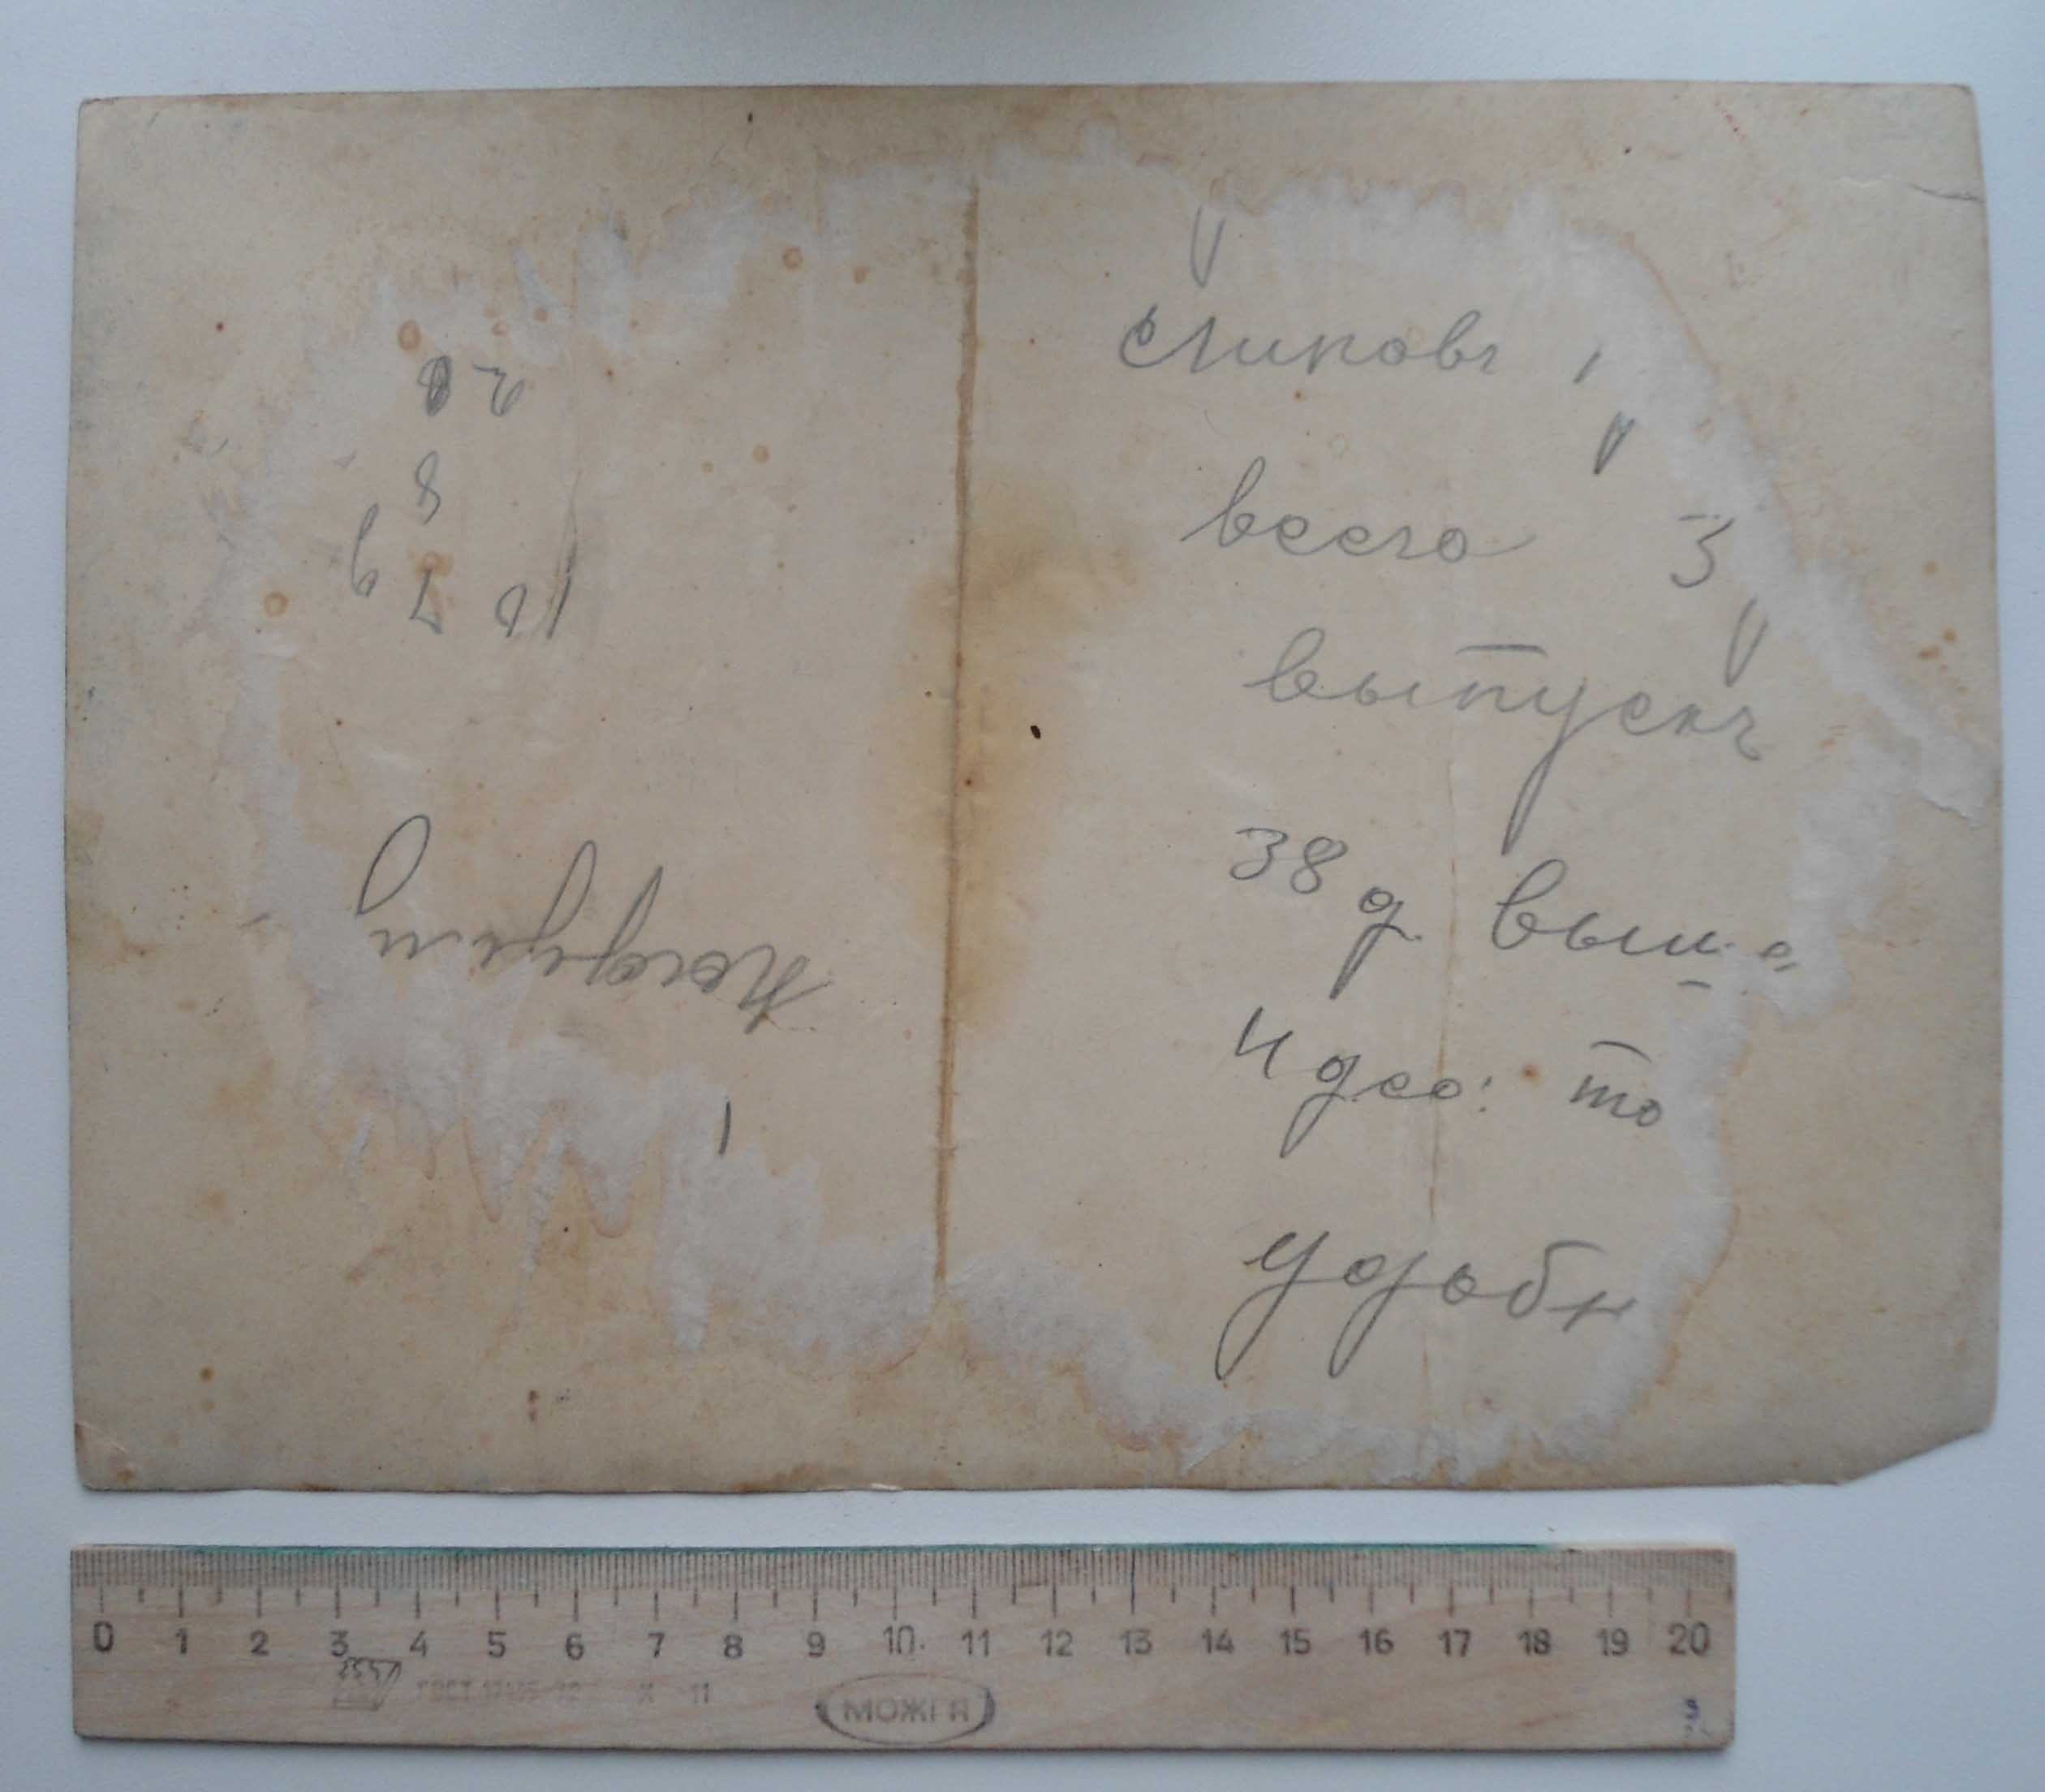 всего 3
выпускъ
38 д. выш
4 дес. то
удобн
20
8
9 7 10
0 1 2 3 4 5 6 7 8 9 10 11 12 13 14 15 16 17 18 19 20
ГОСТ 17435-72 11
МОЖГА